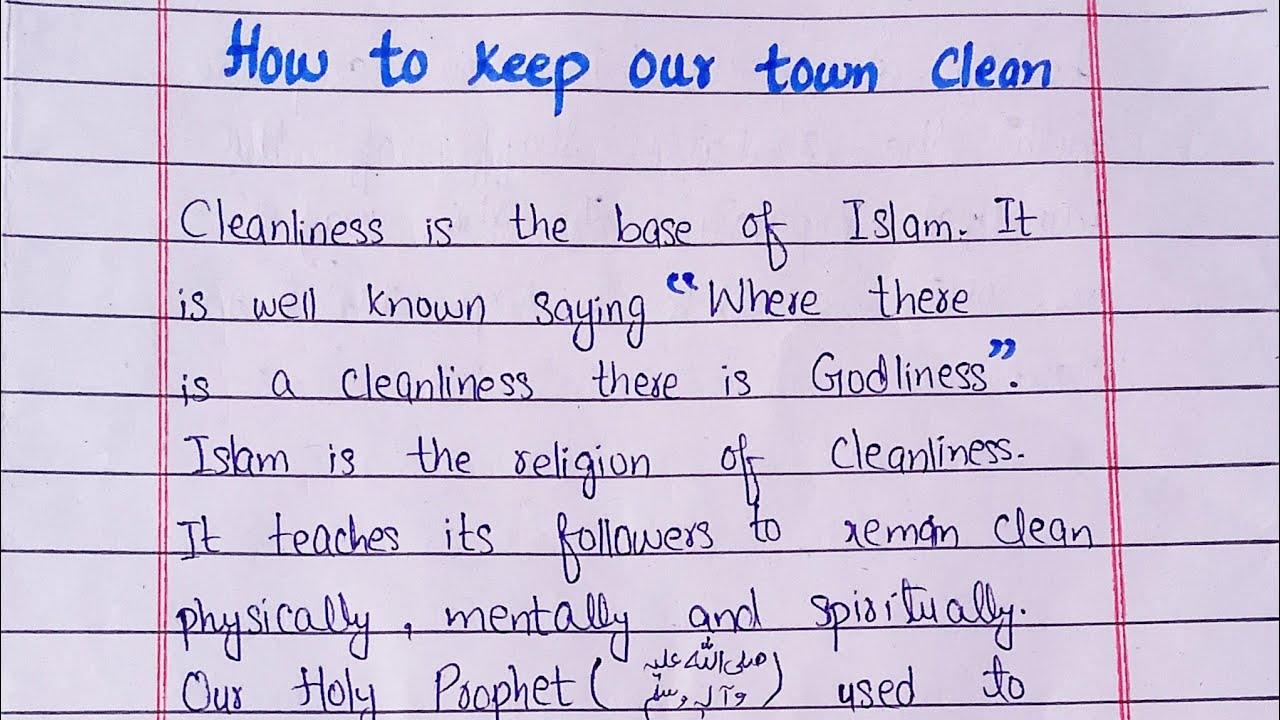 How to keep our town clean
Cleanliness is the base of Islam. It
is well known saying “Where there
is a cleanliness there is Godliness”.
Islam is the religion of cleanliness.
It teaches its followers to reman clean
physically, mentally and spiritually.
Our Holy Prophet (صلی اللہ علیہ وآلہ وسلم) used to